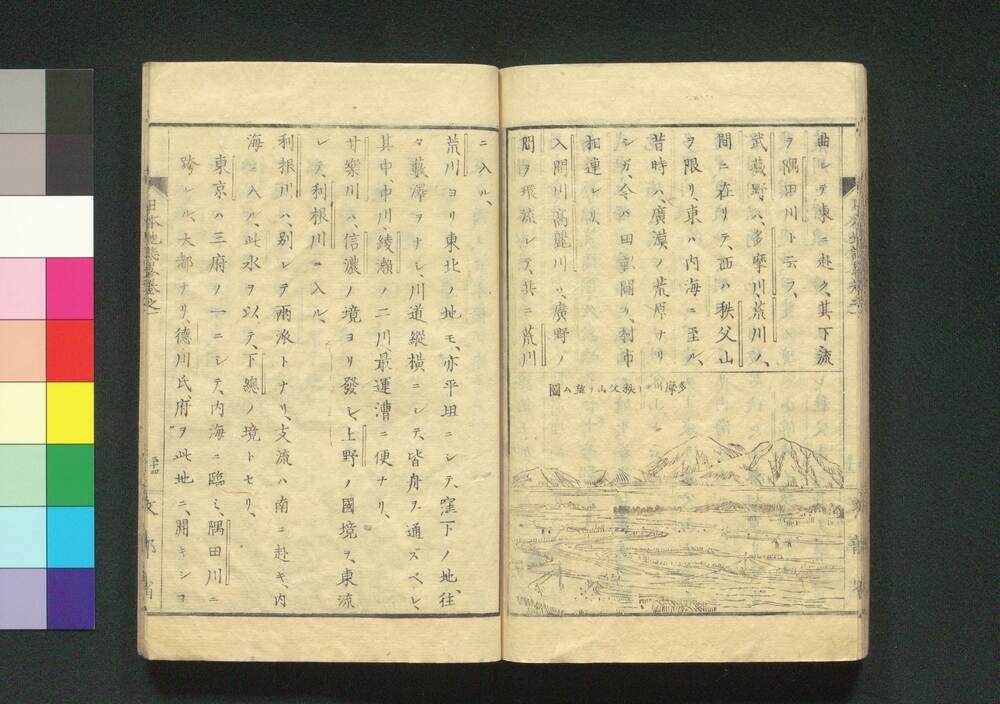 曲レテ東ニ赴ク、其下流
ヲ隅田川ト云フ、
武蔵野ハ、多摩川荒川ノ、
間ニ在リテ、西ハ秩父山
ヲ限リ、東ハ内海ニ至ル、
昔時ハ、廣漠ノ荒原ナリ
シガ、今ハ田畝闢ケ、村市
相連レリ、
入間川高麗川ハ、廣野ノ
間ヲ環流シテ、共ニ荒川
多摩川ヨリ秩父山ヲ望ム圖
ニ入ル、
荒川ヨリ東北ノ地モ、亦平坦ニシテ、窪下ノ地、往
々藪澤ヲナシ、川道縱横ニシテ、皆舟ヲ通ズベシ、
其中中川、綾瀬ノ二川、最運漕ニ便ナリ、
甘樂川ハ、信濃ノ境ヨリ發シ、上野ノ國境ヲ、東流
シテ、利根川ニ入ル、
利根川ハ、別レテ兩派トナリ、支流ハ南ニ赴キ、内
海ニ入ル、此水ヲ以テ、下總ノ境トセリ、
東京ハ三府ノ一ニシテ、内海ニ臨ミ、隅田川ニ
跨レル、大都ナリ、德川氏、府ヲ此地ニ、開キシコ
日本地誌略卷之一
文部省